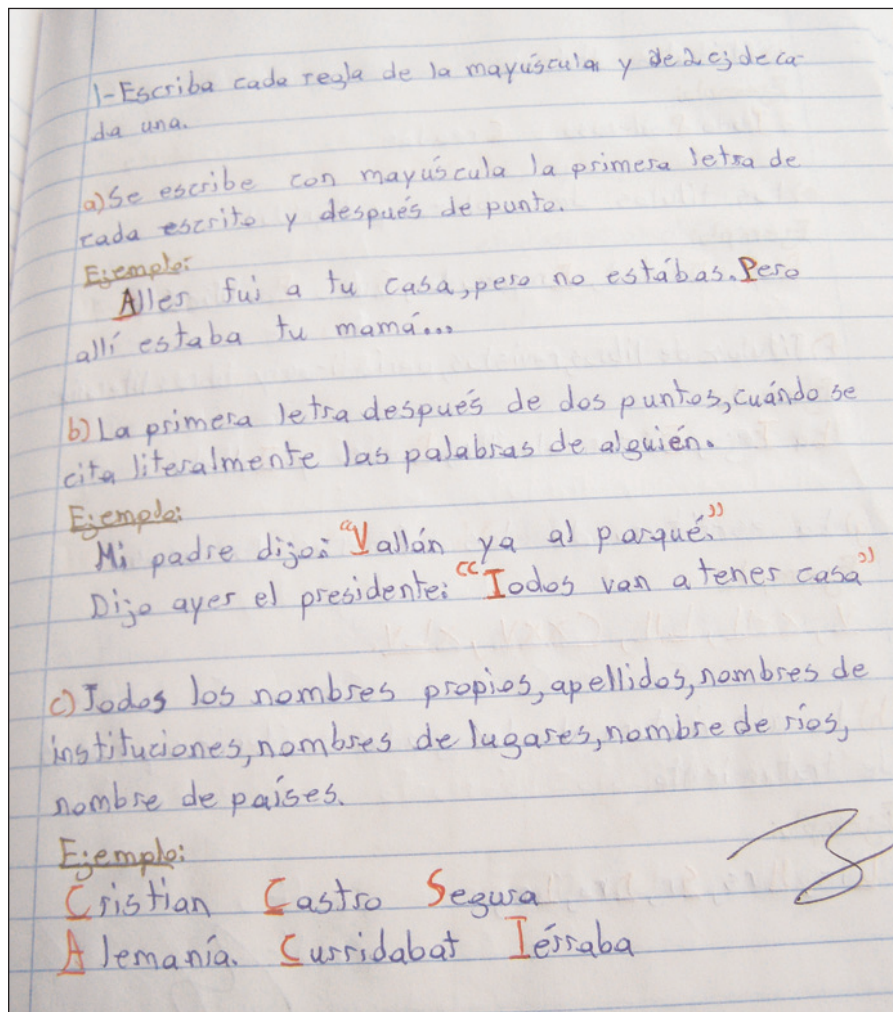 1-Escriba cada regla de la mayúscula y de 2 ej de ca-
da una.
a) Se escribe con mayúscula la primera letra de
cada escrito y después de punto.
Ejemplo:
Aller fui a tu casa, pero no estábas. Pero
allí estaba tu mamá...
b) La primera letra después de dos puntos, cuándo se
cita literalmente las palabras de alguién.
Ejemplo:
Mi padre dijo: "Vallán ya al parqué."
Dijo ayer el presidente: "Todos van a tener casa"
c) Todos los nombres propios, apellidos, nombres de
instituciones, nombres de lugares, nombre de ríos,
nombre de países.
Ejemplo:
Cristian Castro Segura
Alemanía. Curridabat Térraba